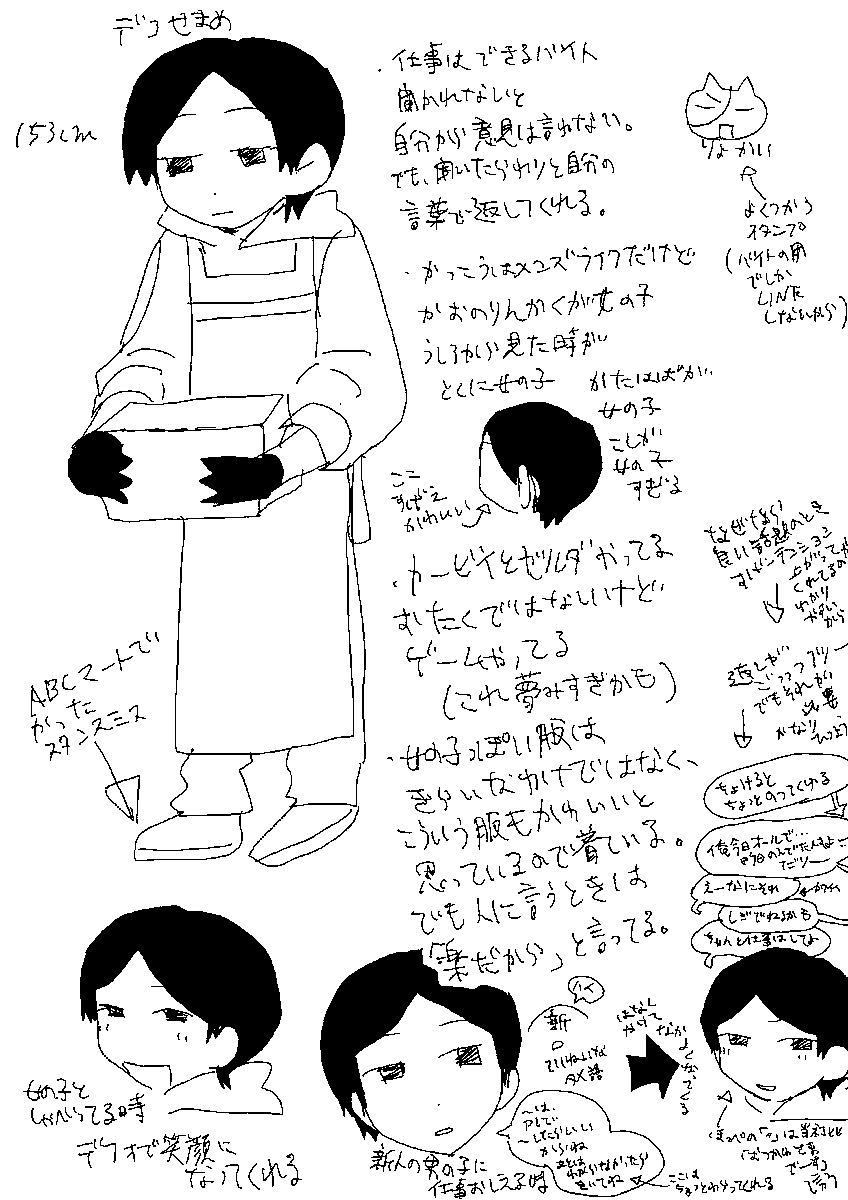 デコせまめ
153cm
・仕事はできるバイト
聞かれないと
自分から意見は言わない。
でも、聞いたらわりと自分の
言葉で返してくれる。
りょかい
よくつかう
スタンプ
(バイトの用
でしか
LINE
しないから)
・かっこうはメンズライクだけど
かおのりんかくが女の子
うしろから見た時が
とくに女の子
かたはばが
女の子
こしが
女の子
すぎる
ここ
すげえ
かわいい
・カービィとゼルダかってる
オタクではないけど
ゲームやってる
(これ夢みすぎかも)
なぜなら
良い話題のとき
テンション
上がって
くれてるの
わかり
やすい
から
返しが
でもそれが
必要
かなり
ABCマートで
かった
スタンスミス
・女の子っぽい服は
きらいなわけではなく、
こういう服もかわいいと
思っているので着ている。
でも人に言うときは
「楽だから」と言ってる。
ちょけると
ちょっとのってくれる
俺今日オールで…
えーなにそれ
しぎでねるかも
ちゃんと仕事はしてよ
女の子と
しゃべってる時
デフォで笑顔に
なってくれる
新人の男の子に
仕事おしえる時
ハイ
新
ていねいな
タメ語
〜は、
アレで
〜したらいい
からね
あとは
わからなかったら
きいてね
はなし
かけて
なか
よくなってくる
ここは
ちょっとわらってくれる